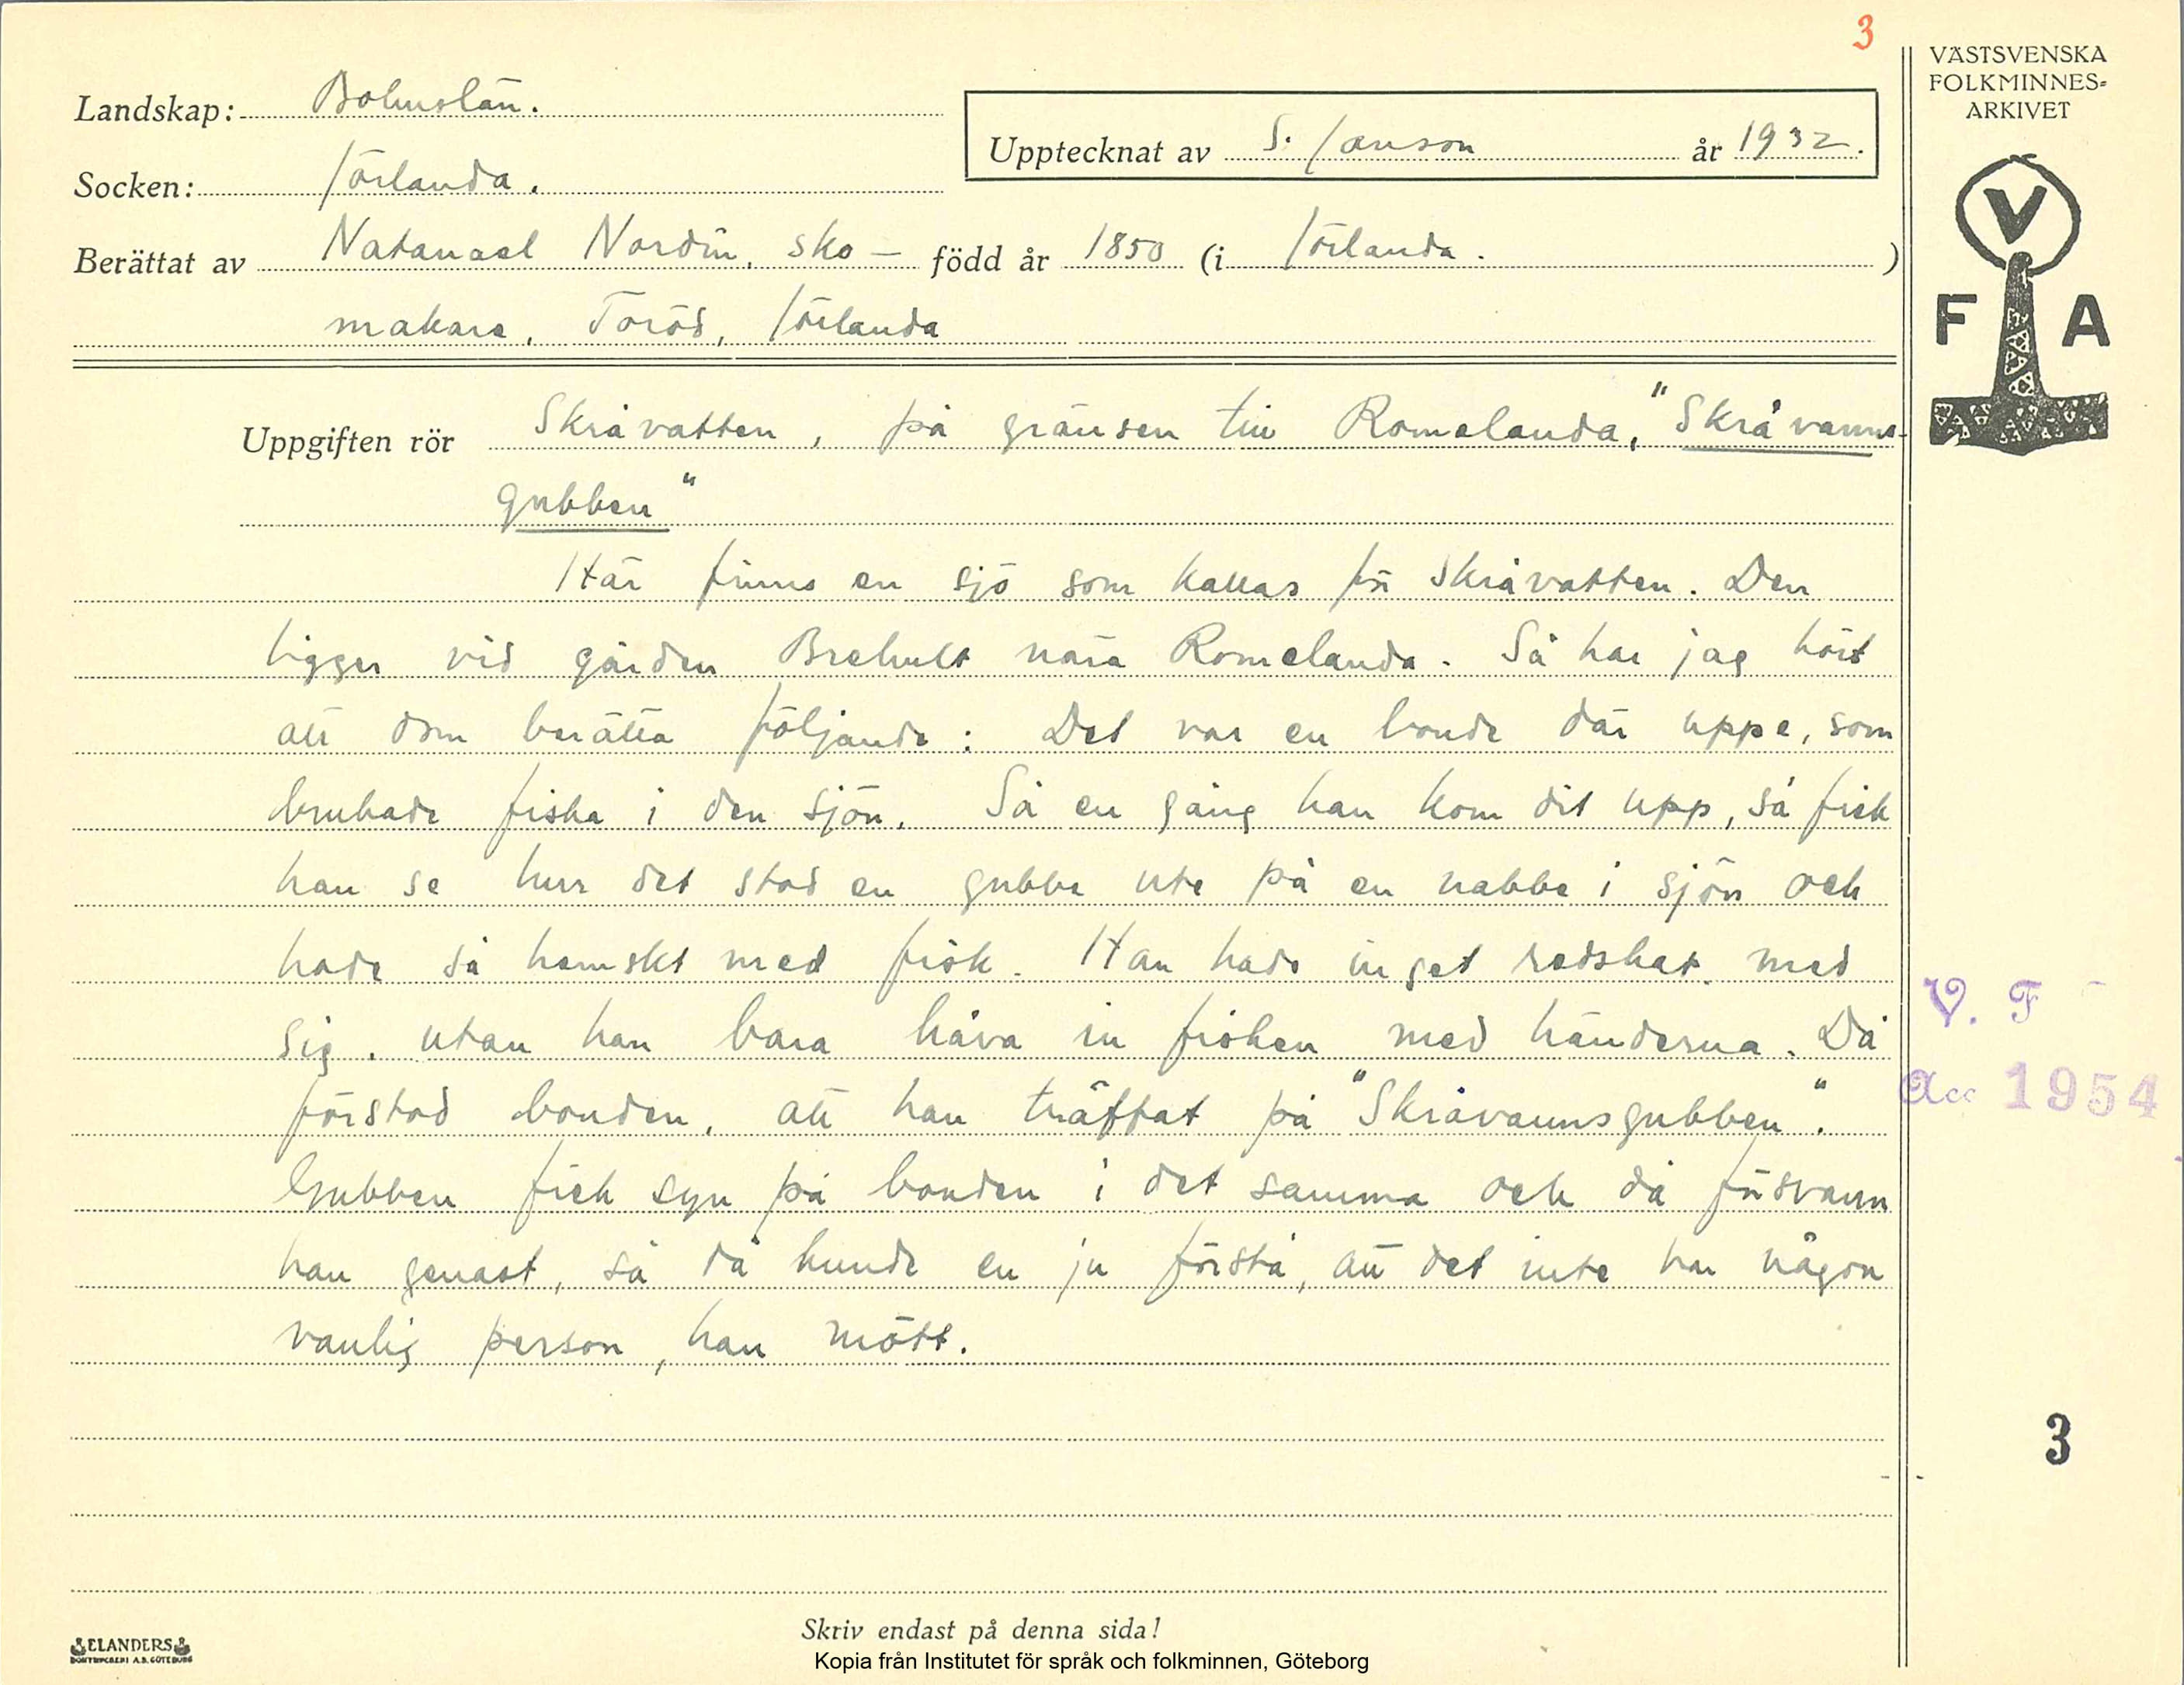 3
VÄSTSVENSKA
FOLKMINNES-
ARKIVET
Landskap: Bohuslän.
Upptecknat av S. Janson år 1932.
Socken: Jörlanda.
Berättat av Natanael Nordin, sko- född år 1850 (i Jörlanda. )
makare, Toröd, Jörlanda
V
F A
Uppgiften rör Skråvatten, på gränsen till Romelanda, "Skråvanns-
gubben"
Här finns en sjö som kallas för Skråvatten. Den
ligger vid gården Brehult nära Romelanda. Så har jag hört
att dom berätta följande: Det var en bonde där uppe, som
brukade fiska i den sjön. Så en gång han kom dit upp, så fick
han se hur det stod en gubbe ute på en nabbe i sjön och
hade så hemskt med fisk. Han hade inget redskap med
sig, utan han bara håva in fisken med händerna. Då
förstod bonden, att han träffat på "Skråvannsgubben".
Gubben fick syn på bonden i det samma och då försvann
han genast, så då kunde en ju förstå, att det inte var någon
vanlig person, han mött.
V. F
Acc 1954
3
Skriv endast på denna sida!
ELANDERS
BOKTRYCKERI A.B. GÖTEBORG
Kopia från Institutet för språk och folkminnen, Göteborg